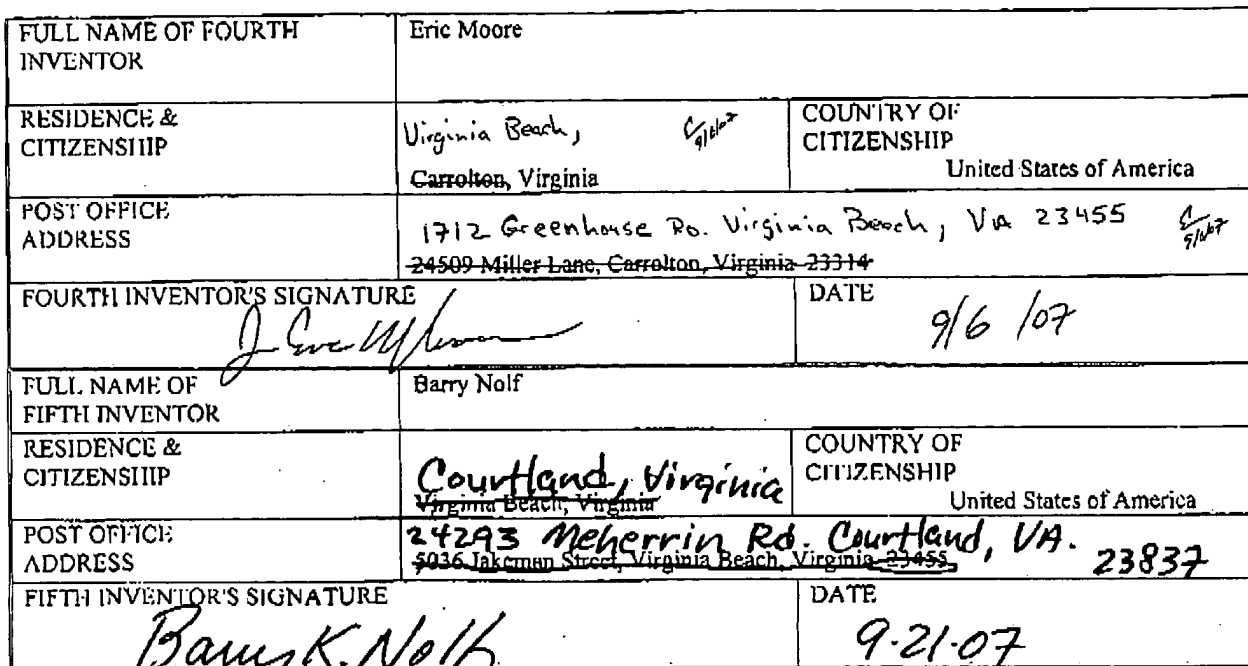 FULL NAME OF FOURTH INVENTOR
Eric Moore
RESIDENCE & CITIZENSHIP
Virginia Beach, 9/6/07
Carrolton, Virginia
COUNTRY OF CITIZENSHIP
United States of America
POST OFFICE ADDRESS
1712 Greenhouse Rd. Virginia Beach, VA 23455 9/6/07
24509 Miller Lane, Carrolton, Virginia 23314
FOURTH INVENTOR'S SIGNATURE
DATE
9/6/07
FULL NAME OF FIFTH INVENTOR
Barry Nolf
RESIDENCE & CITIZENSHIP
Courtland, Virginia
Virginia Beach, Virginia
COUNTRY OF CITIZENSHIP
United States of America
POST OFFICE ADDRESS
24293 Meherrin Rd. Courtland, VA. 23837
5036 Jakeman Street, Virginia Beach, Virginia 23455
FIFTH INVENTOR'S SIGNATURE
Barry K. Nolf
DATE
9-21-07